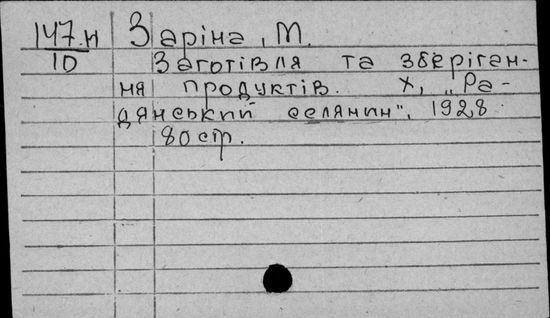 147.н Заріна, М.
10 Заготівля та зберіган-
ня продуктів. Х, „Ра-
дянський селянин", 1928
80 стр.